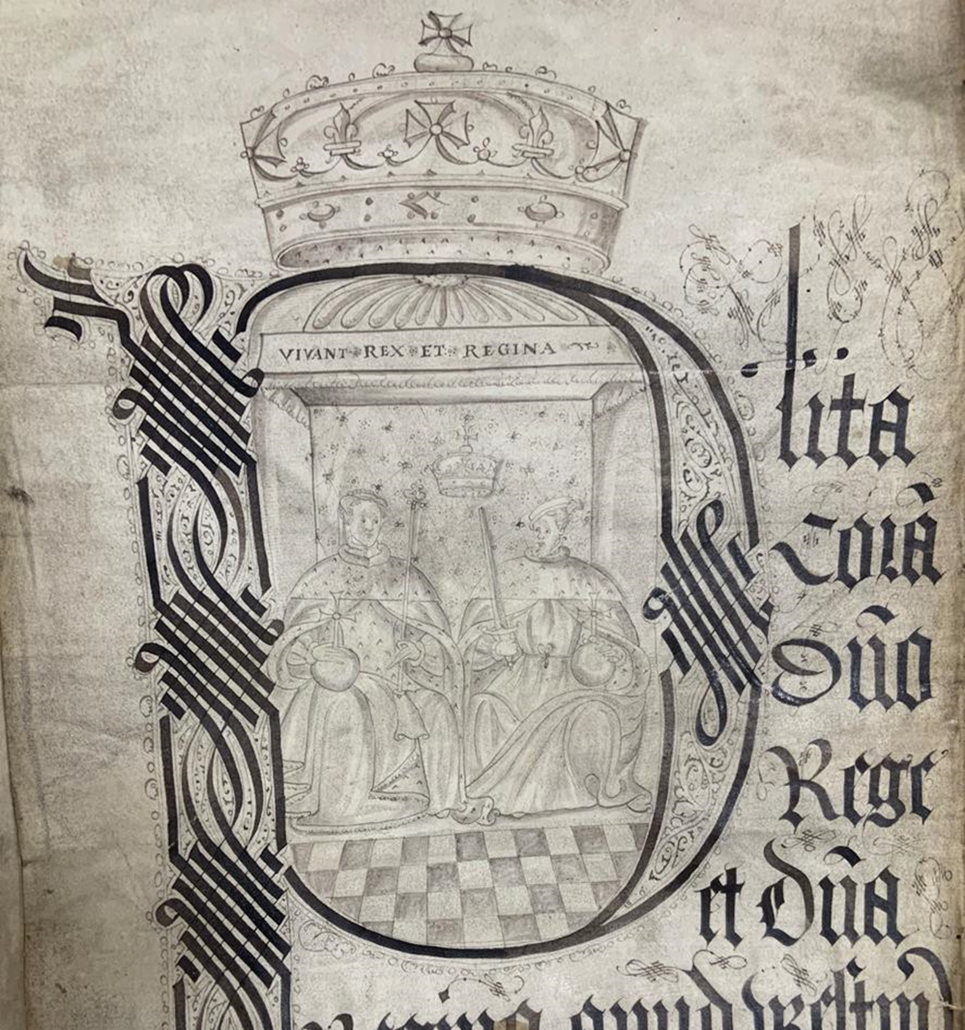 VIVANT REX ET REGINA
Plita
Corā
Dño
Rege
et Dña
Regina apud Westm̄